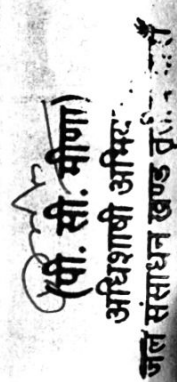 (पी. सी. मीणा)
अधिशाषी अभिय
जल संसाधन खण्ड